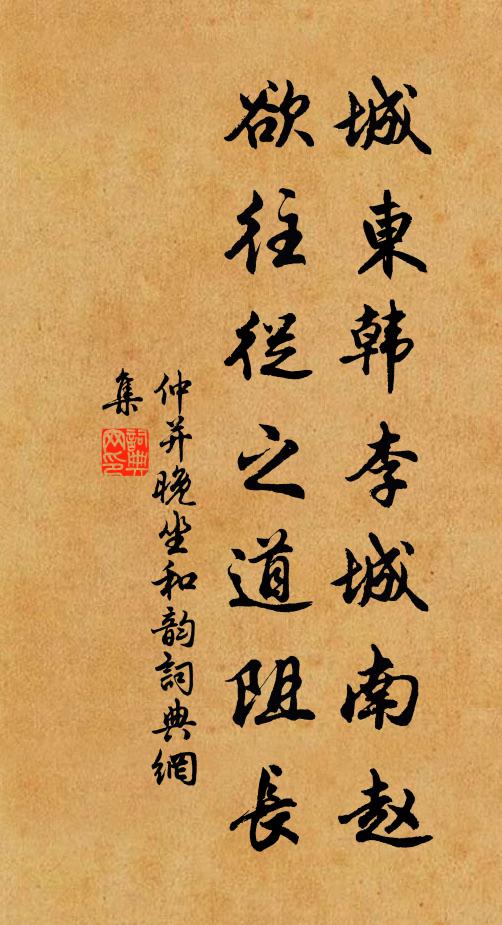 城東韩李城南赵
欲往從之道阻長
仲并晚坐和韵詞典網
集
詞典网印